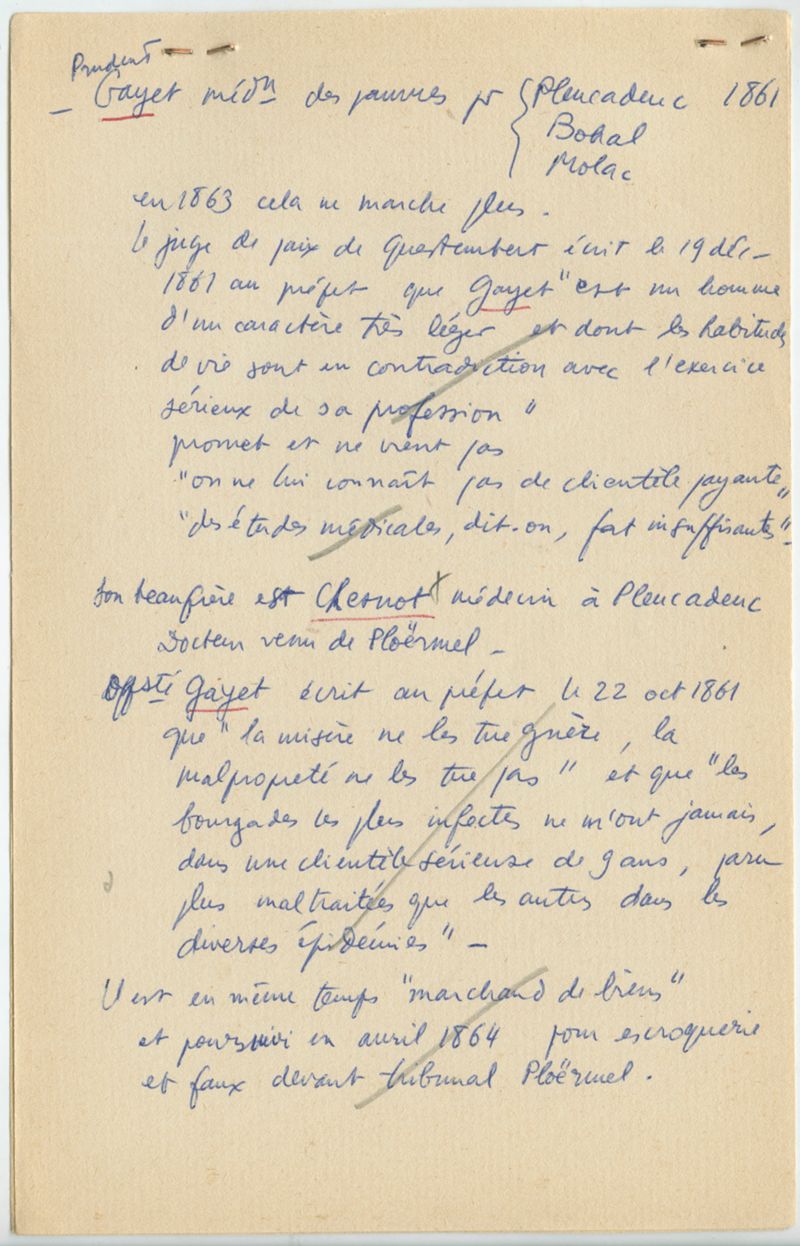 Prudent
– Gayet médn des pauvres pr { Pleucadeuc 1861
Bohal
Molac
en 1863 cela ne marche plus.
le juge de paix de Questembert écrit le 19 déc–
1861 au préfet que Gayet "est un homme
d'un caractère très léger et dont les habitudes
de vie sont en contradiction avec l'exercice
sérieux de sa profession"
promet et ne vient pas
"on ne lui connaît pas de clientèle payante"
"des études médicales, dit-on, fort insuffisantes"–
Son beau frère est Chesnot x médecin à Pleucadeuc
Docteur venu de Ploërmel –
Gayet écrit au préfet le 22 oct 1861
que "la misère ne les tue guère, la
malpropreté ne les tue pas" et que "les
bourgades les plus infectes ne m'ont jamais,
dans une clientèle sérieuse de 9 ans, paru
plus maltraitées que les autres dans les
diverses épidémies" –
Il est en même temps "marchand de biens"
et poursuivi en avril 1864 pour escroquerie
et faux devant tribunal Ploërmel.